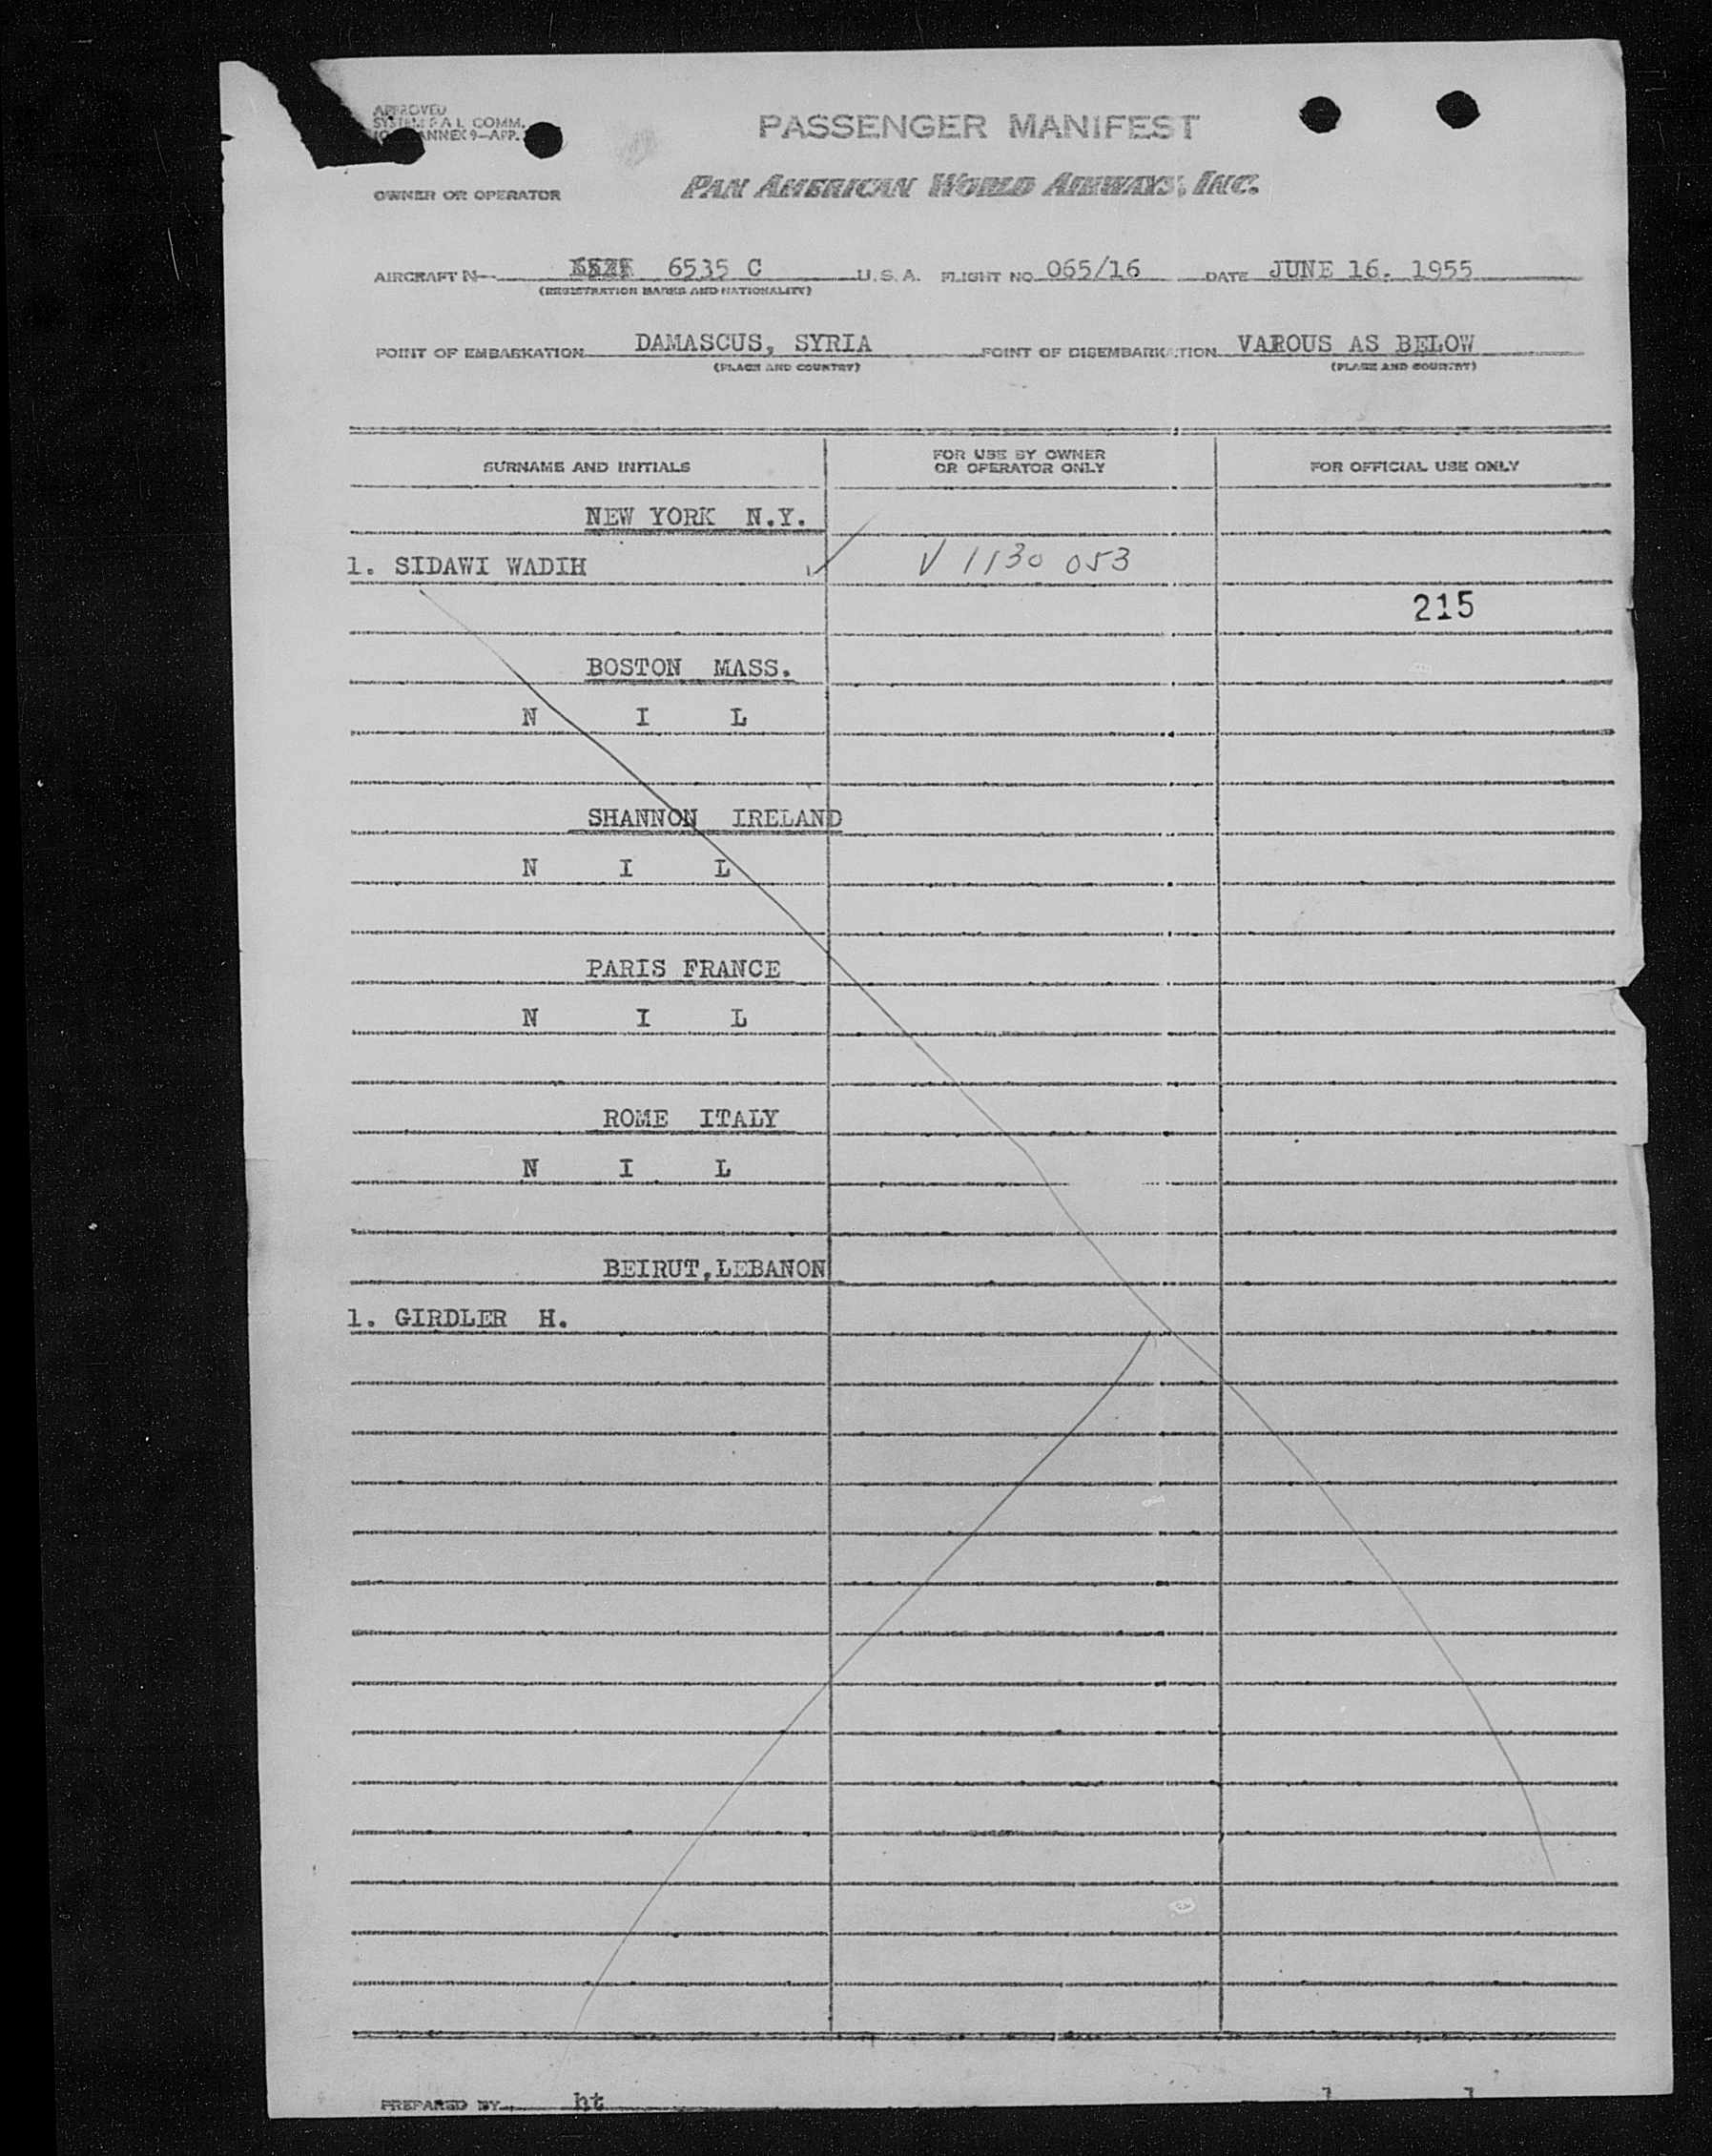 APPROVED
SYSTEM F A L COMM.
ANNEX 9—APP.
PASSENGER MANIFEST
OWNER OR OPERATOR PAN AMERICAN WORLD AIRWAYS, INC.
AIRCRAFT N 6535 C U.S.A. FLIGHT NO. 065/16 DATE JUNE 16. 1955
(REGISTRATION MARKS AND NATIONALITY)
POINT OF EMBARKATION DAMASCUS, SYRIA POINT OF DISEMBARKATION VAROUS AS BELOW
(PLACE AND COUNTRY) (PLACE AND COUNTRY)
SURNAME AND INITIALS FOR USE BY OWNER OR OPERATOR ONLY FOR OFFICIAL USE ONLY
NEW YORK N.Y.
1. SIDAWI WADIH V 1130 053
215
BOSTON MASS.
N I L
SHANNON IRELAND
N I L
PARIS FRANCE
N I L
ROME ITALY
N I L
BEIRUT,LEBANON
1. GIRDLER H.
PREPARED BY ht